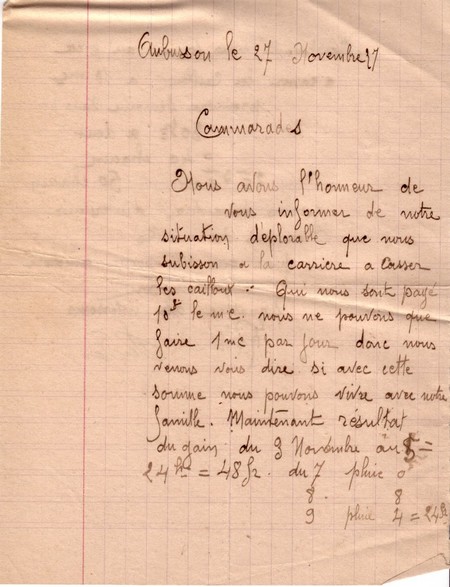 Aubusson le 27 Novembre 17
Cammarades
Nous avons l'honneur de
vous informer de notre
situation déplorable que nous
subisson a la carriere a casser
les cailloux. Qui nous sont payé
10f le mc. nous ne pouvons que
faire 1mc par jour donc nous
venons vous dire si avec cette
somme nous pouvons vivre avec notre
famille. Maintenant résultat
du gain du 3 Novembre au 5 =
24 hres = 48 fr. du 7 pluie 0
8. 8
9 pluie 4 = 24 fr